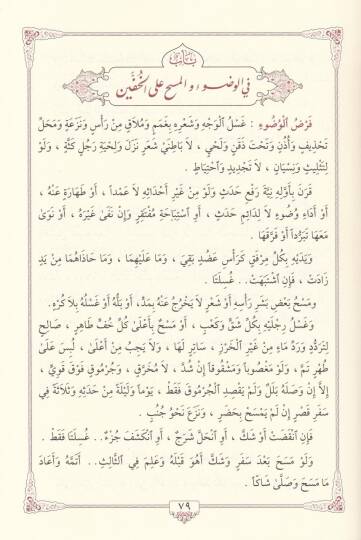 بَاب
في الوضوء والمسح على الخفين
فَرْضُ ٱلْوُضُوءِ : غَسْلُ ٱلْوَجْهِ وَشَعْرِهِ بِغَمَمٍ وَمُلَاقٍ مِنْ رَأْسٍ وَنَزَعَةٍ وَمَحَلِّ
تَحْذِيفٍ وَأُذُنٍ وَتَحْتَ ذَقَنٍ وَلَحْيٍ ، لَا بَاطِنَيْ شَعْرٍ نَزَلَ وَلِحْيَةِ رَجُلٍ كَثَّةٍ ، وَلَوْ
لِتَثْلِيثٍ وَنِسْيَانٍ ، لَا تَجْدِيدٍ وَٱحْتِيَاطٍ .
قَرَنَ بِأَوَّلِهِ نِيَّةَ رَفْعِ حَدَثٍ وَلَوْ مِنْ غَيْرِ أَحْدَاثِهِ لَا عَمْداً ، أَوْ طَهَارَةٍ عَنْهُ ،
أَوْ أَدَاءِ وُضُوءٍ لَا لِدَائِمِ حَدَثٍ ، أَوِ ٱسْتِبَاحَةِ مُفْتَقِرٍ وَإِنْ نَفَىٰ غَيْرَهُ ، أَوْ نَوَىٰ
مَعَهَا تَبَرُّداً أَوْ فَرَّقَهَا .
وَيَدَيْهِ بِكُلِّ مِرْفَقٍ كَرَأْسِ عَضُدٍ بَقِيَ ، وَمَا عَلَيْهِمَا ، وَمَا حَاذَاهُمَا مِنْ يَدٍ
زَادَتْ ، فَإِنِ ٱشْتَبَهَتْ.. غُسِلَتَا .
وَمَسْحُ بَعْضِ بَشَرِ رَأْسِهِ أَوْ شَعْرٍ لَا يَخْرُجُ عَنْهُ بِمَدٍّ، أَوْ بَلُّهُ أَوْ غَسْلُهُ بِلَا كُرْهٍ.
وَغَسْلُ رِجْلَيْهِ بِكُلِّ شَقٍّ وَكَعْبٍ ، أَوْ مَسْحٌ بِأَعْلَىٰ كُلِّ خُفٍّ طَاهِرٍ ، صَالِحٍ
لِتَرَدُّدٍ وَرَدِّ مَاءٍ مِنْ غَيْرِ ٱلْخَرْزِ ، سَاتِرٍ لَهَا ، وَلَا يَجِبُ مِنْ أَعْلَىٰ ، لُبِسَ عَلَىٰ
طُهْرٍ تَمَّ ، وَلَوْ مَغْصُوباً وَمَشْقُوقاً إِنْ شُدَّ ، لَا مُخَرَّقٍ ، وَجُرْمُوقٍ فَوْقَ قَوِيٍّ ،
إِلَّا إِنْ وَصَلَهُ بَلَلٌ وَلَمْ يَقْصِدِ ٱلْجُرْمُوقَ فَقَطْ ، يَوْماً وَلَيْلَةً مِنْ حَدَثِهِ وَثَلَاثَةً فِي
سَفَرِ قَصْرٍ إِنْ لَمْ يَمْسَحْ بِحَضَرٍ ، وَنَزَعَ نَحْوُ جُنُبٍ .
فَإِنِ ٱنْقَضَتْ أَوْ شَكَّ ، أَوِ ٱنْحَلَّ شَرَجٌ ، أَوِ ٱنْكَشَفَ جُزْءٌ.. غُسِلَتَا فَقَطْ .
وَلَوْ مَسَحَ بَعْدَ سَفَرٍ وَشَكَّ أَهُوَ قَبْلَهُ وَعَلِمَ فِي ٱلثَّالِثِ.. أَتَمَّهُ وَأَعَادَ
مَا مَسَحَ وَصَلَّىٰ شَاكّاً .
٧٩